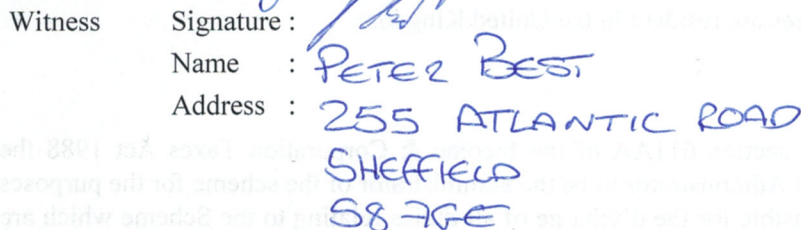 Witness Signature :
Name : PETER BEST
Address : 255 ATLANTIC ROAD
SHEFFIELD
S8 7GE